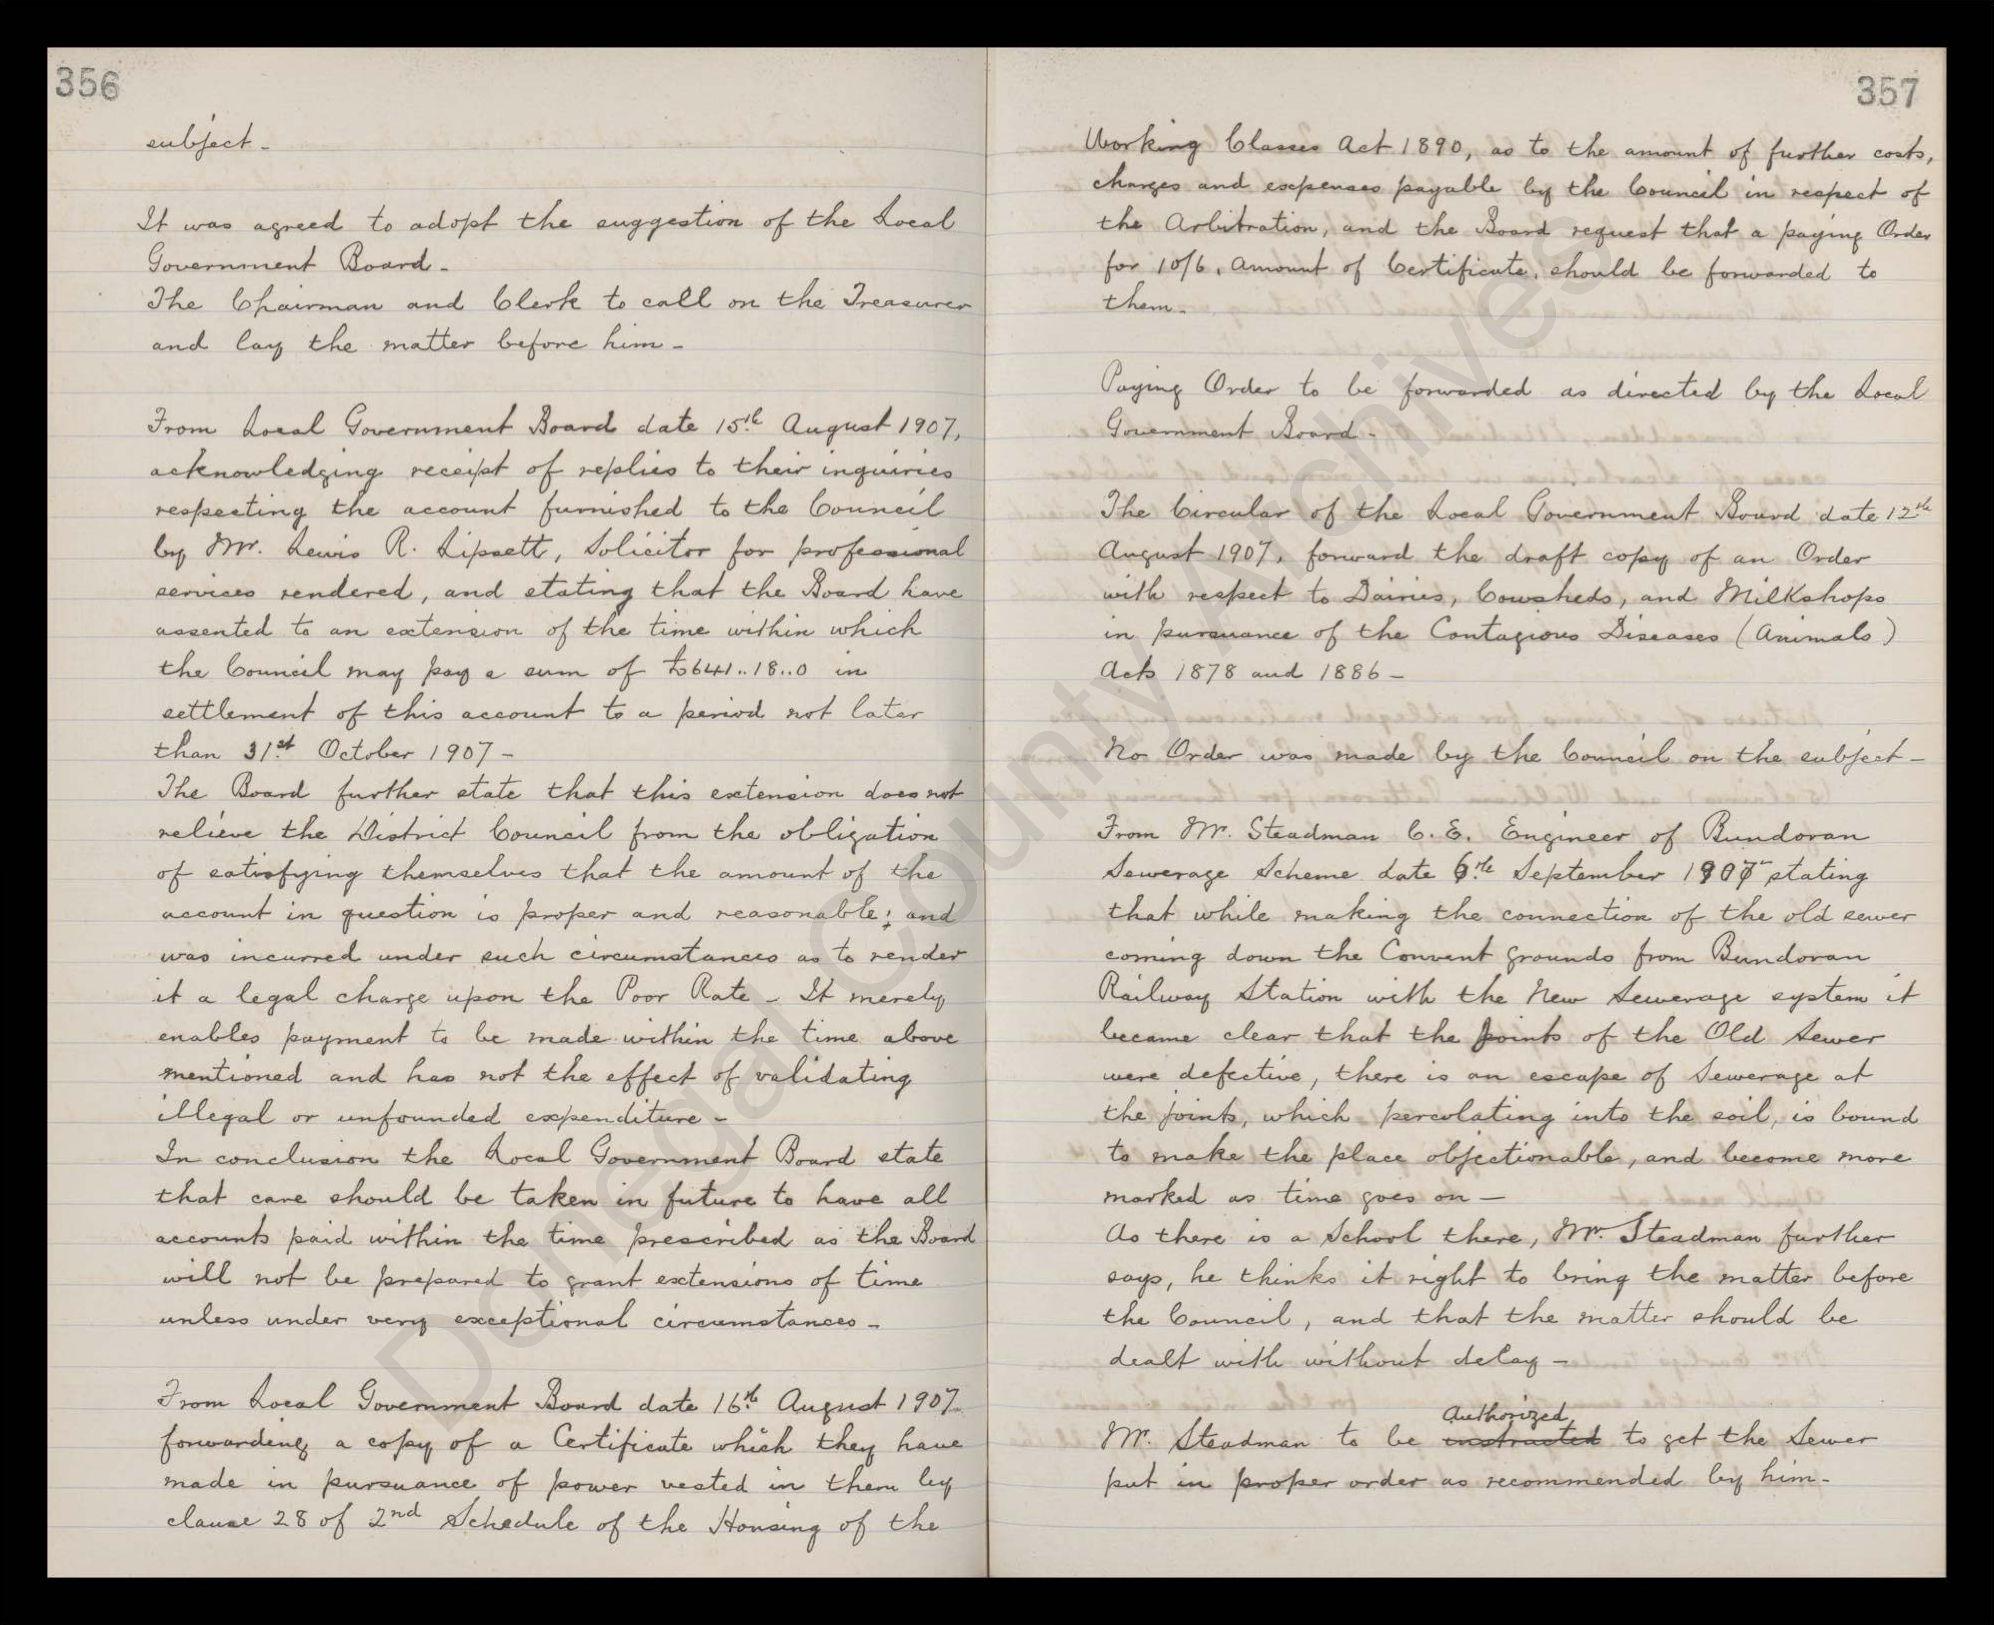 356
subject -
It was agreed to adopt the suggestion of the Local
Government Board -
The Chairman and Clerk to call on the Treasurer
and lay the matter before him -
From Local Government Board date 15th August 1907,
acknowledging receipt of replies to their inquiries
respecting the account furnished to the Council
by Mr. Lewis R. Lipsett, Solicitor for professional
services rendered, and stating that the Board have
assented to an extension of the time within which
the Council may pay a sum of £641..18..0 in
settlement of this account to a period not later
than 31st October 1907 -
The Board further state that this extension does not
relieve the District Council from the obligation
of satisfying themselves that the amount of the
account in question is proper and reasonable; and
was incurred under such circumstances as to render
it a legal charge upon the Poor Rate - It merely
enables payment to be made within the time above
mentioned and has not the effect of validating
illegal or unfounded expenditure -
In conclusion the Local Government Board state
that care should be taken in future to have all
accounts paid within the time prescribed as the Board
will not be prepared to grant extensions of time
unless under very exceptional circumstances -
From Local Government Board date 16th August 1907
forwarding a copy of a Certificate which they have
made in pursuance of power vested in them by
clause 28 of 2nd Schedule of the Housing of the
357
Working Classes Act 1890, as to the amount of further costs,
charges and expenses payable by the Council in respect of
the Arbitration, and the Board request that a paying Order
for 10/6, amount of Certificate, should be forwarded to
them -
Paying Order to be forwarded as directed by the Local
Government Board -
The Circular of the Local Government Board date 12th
August 1907, forward the draft copy of an Order
with respect to Dairies, Cowsheds, and Milkshops
in pursuance of the Contagious Diseases (Animals)
Acts 1878 and 1886 -
No Order was made by the Council on the subject -
From Mr. Steadman C. E. Engineer of Bundoran
Sewerage Scheme date 6th September 1907 stating
that while making the connection of the old sewer
coming down the Convent grounds from Bundoran
Railway Station with the New Sewerage system it
became clear that the joints of the Old Sewer
were defective, there is an escape of Sewerage at
the joints, which percolating into the soil, is bound
to make the place objectionable, and become more
marked as time goes on -
As there is a School there, Mr. Steadman further
says, he thinks it right to bring the matter before
the Council, and that the matter should be
dealt with without delay -
authorized
Mr. Steadman to be instructed to get the Sewer
put in proper order as recommended by him -
Donegal County Archives